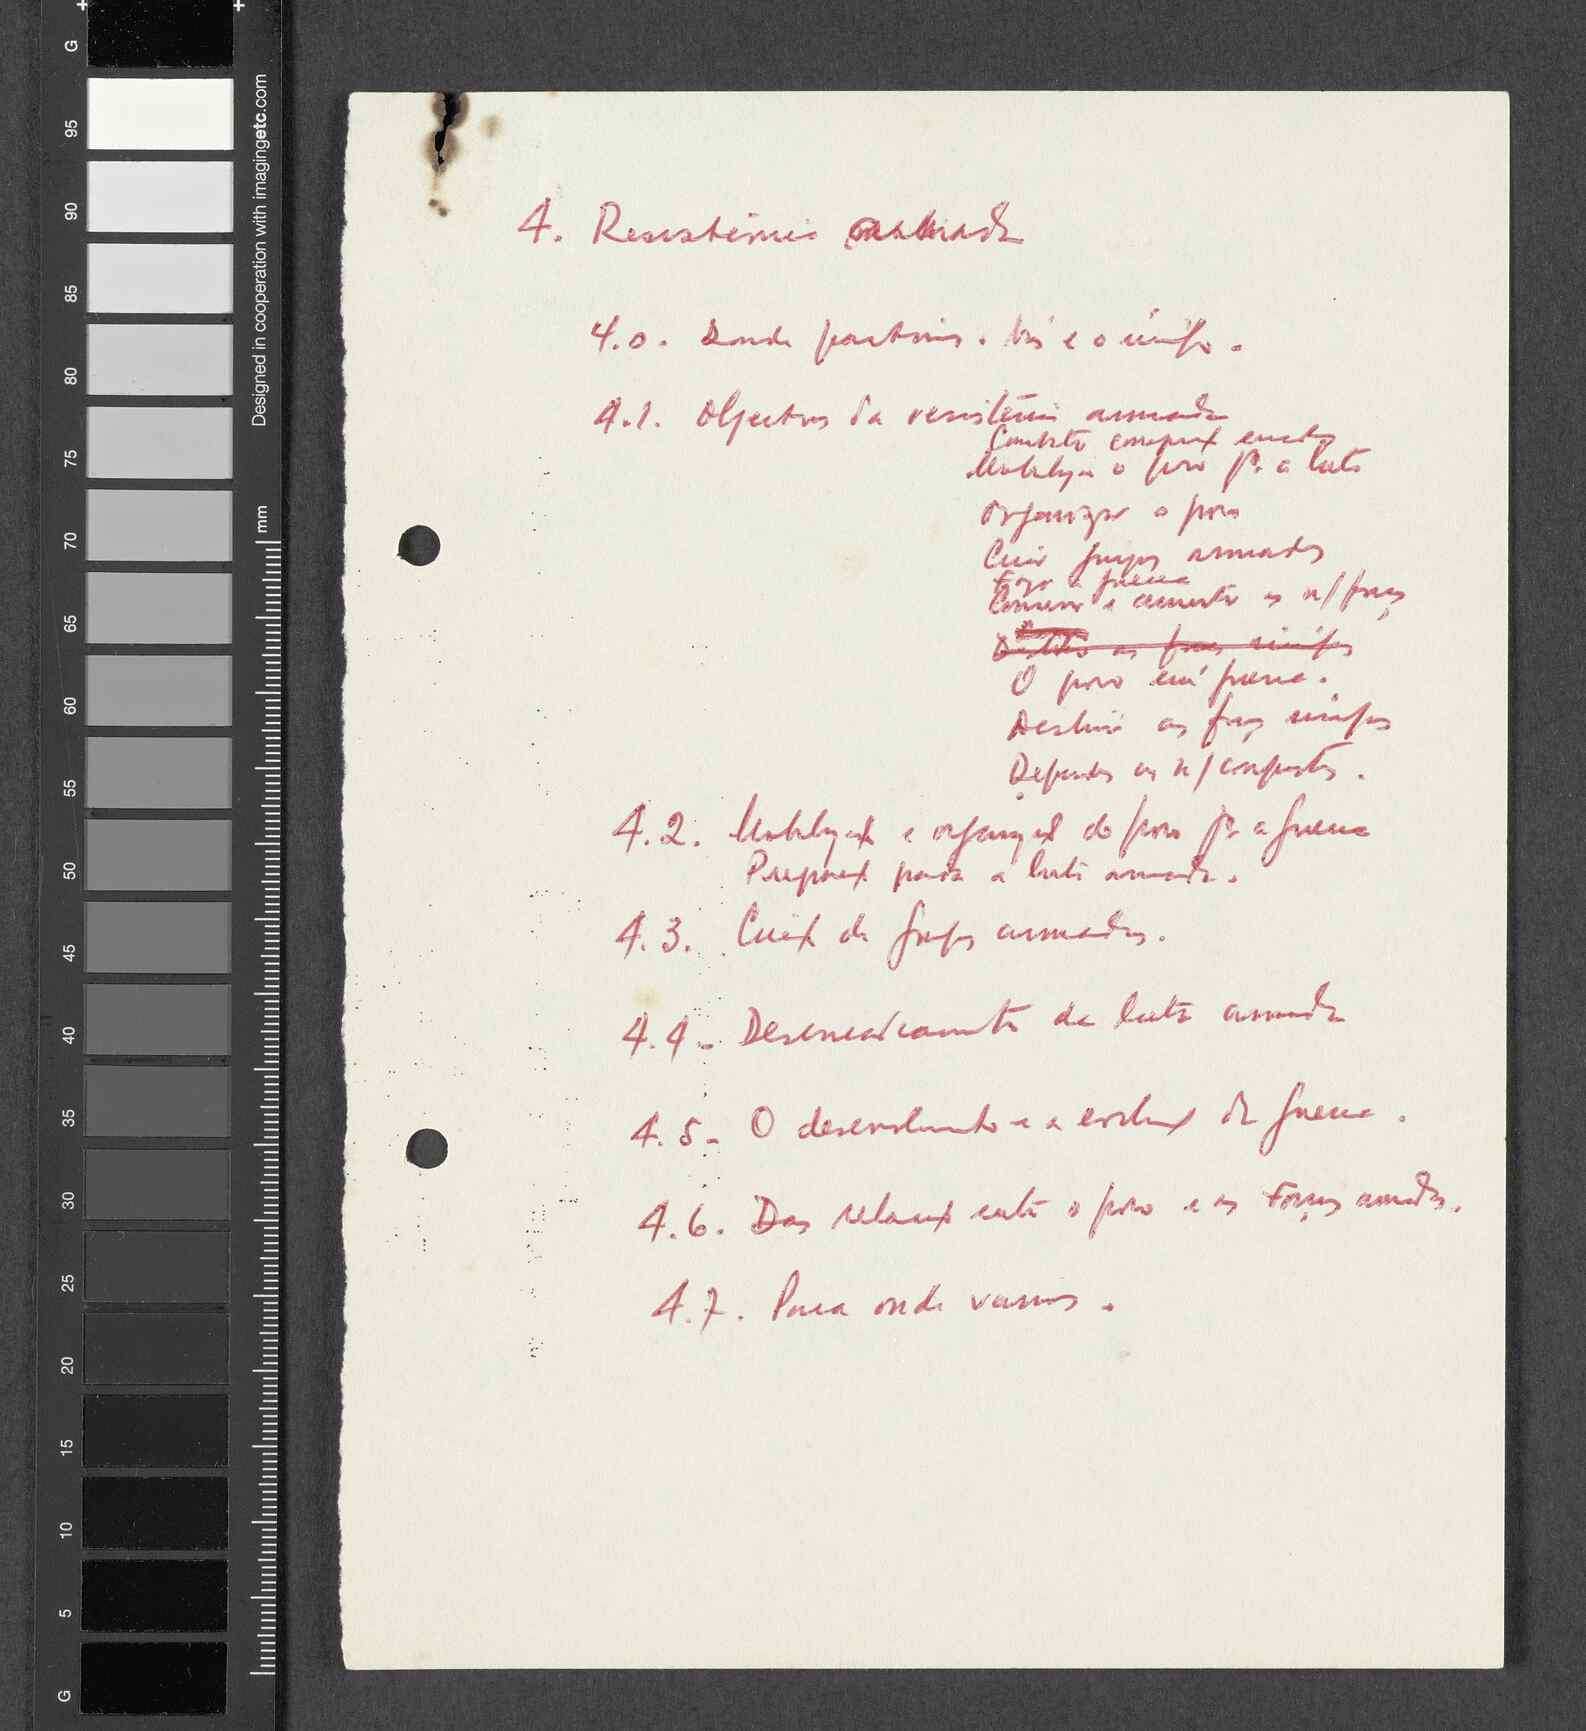 4. Resistência armada
4.0. Donde partimos. Nós e o inimigo.
4.1. Objectivos da resistência armada
Mobilizar o povo p. a luta
Organizar o povo
Criar grupos armados
Fazer a guerra
Conservar e aumentar as n/ forças
Destruir as forças inimigas
O povo em guerra.
Destruir as forças inimigas
Defender as n/ conquistas.
4.2. Mobilizaç e organizaç do povo p. a guerra
Preparaç para a luta armada.
4.3. Criaç de grupos armados.
4.4. Desencadeamento da luta armada
4.5. O desenvolvimento e a evoluç da guerra.
4.6. Das relações entre o povo e as Forças armadas.
4.7. Para onde vamos.
G
95
90
85
80
75
70
65
60
55
50
45
40
35
30
25
20
15
10
5
G
mm
Designed in cooperation with imagingetc.com